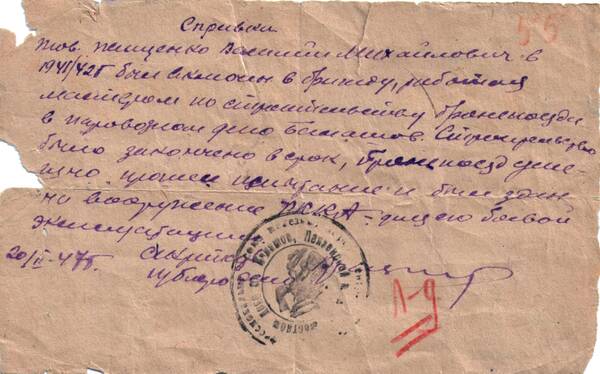 Справка
55
тов. Пещенко Василий Михайлович в
1941/42г был включён в бригаду, работая
мастером по строительству бронепоезда
в паровозном депо Балашов. Строительство
было закончено в срок, бронепоезд успе-
шно прошел испытание и был сдан
на вооружение РККА - для его боевой
эксплуатации
20/II-47г.
Л-9